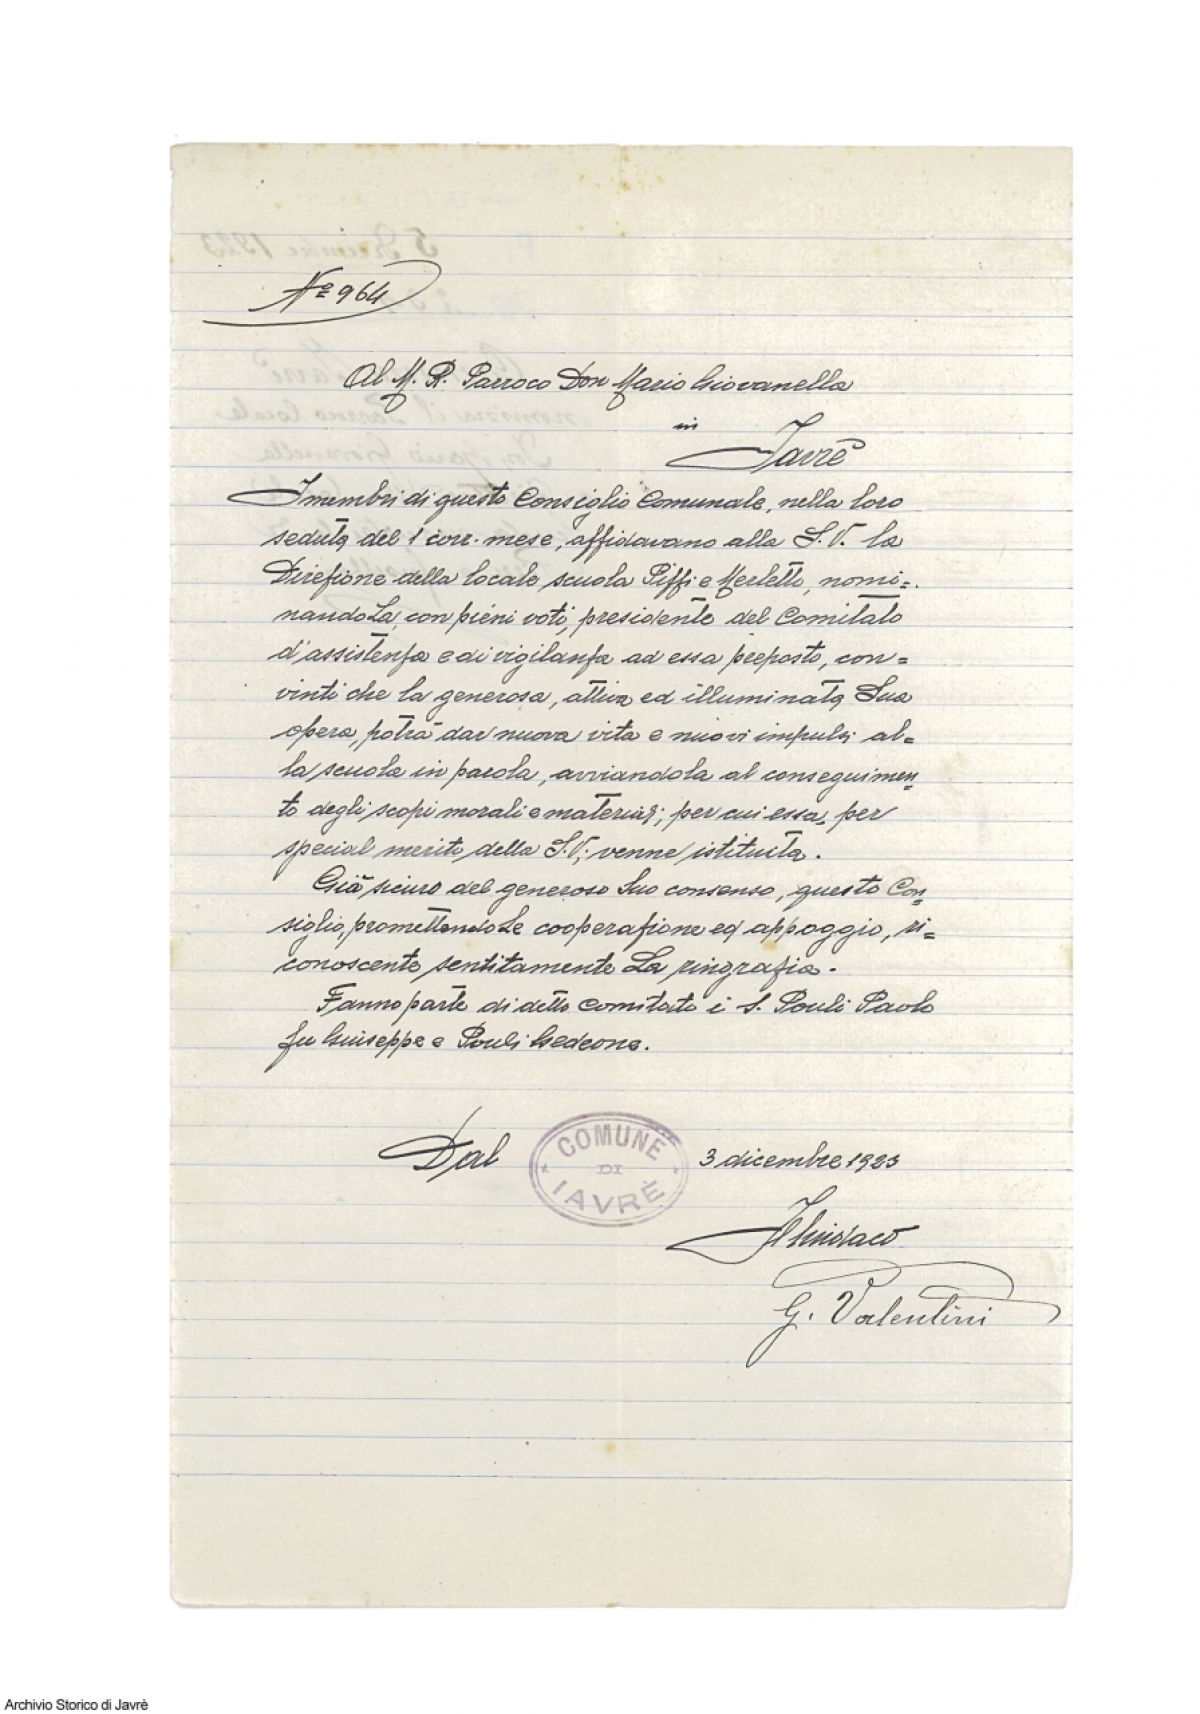 Nº 964
Al M. R. Parroco Don Mario Giovanella
in
Javrè
I membri di questo Consiglio Comunale, nella loro
seduta del 1 corr. mese, affidavano alla S.V. la
Direzione della locale scuola Pizzi e Merletti, nomi=
nandoLa, con pieni voti, presidente del Comitato
d'assistenza e di vigilanza ad essa preposto, con=
vinti che la generosa, attiva ed illuminata Sua
opera, potrà dar nuova vita e nuovi impulsi al=
la scuola in parola, avviandola al conseguimen=
to degli scopi morali e materiali; per cui essa, per
special merito della S.V., venne istituita.
Già sicuro del generoso Suo consenso, questo Con=
siglio, promettendoLe cooperazione ed appoggio, ri=
conoscente sentitamente La ringrazia.
Fanno parte di detto comitato i S. Pouli Paolo
fu Giuseppe e Pouli Gedeone.
Dal COMUNE DI IAVRÈ 3 dicembre 1923
Il Sindaco
G. Valentini
5 Dicembre 1923
Archivio Storico di Javrè